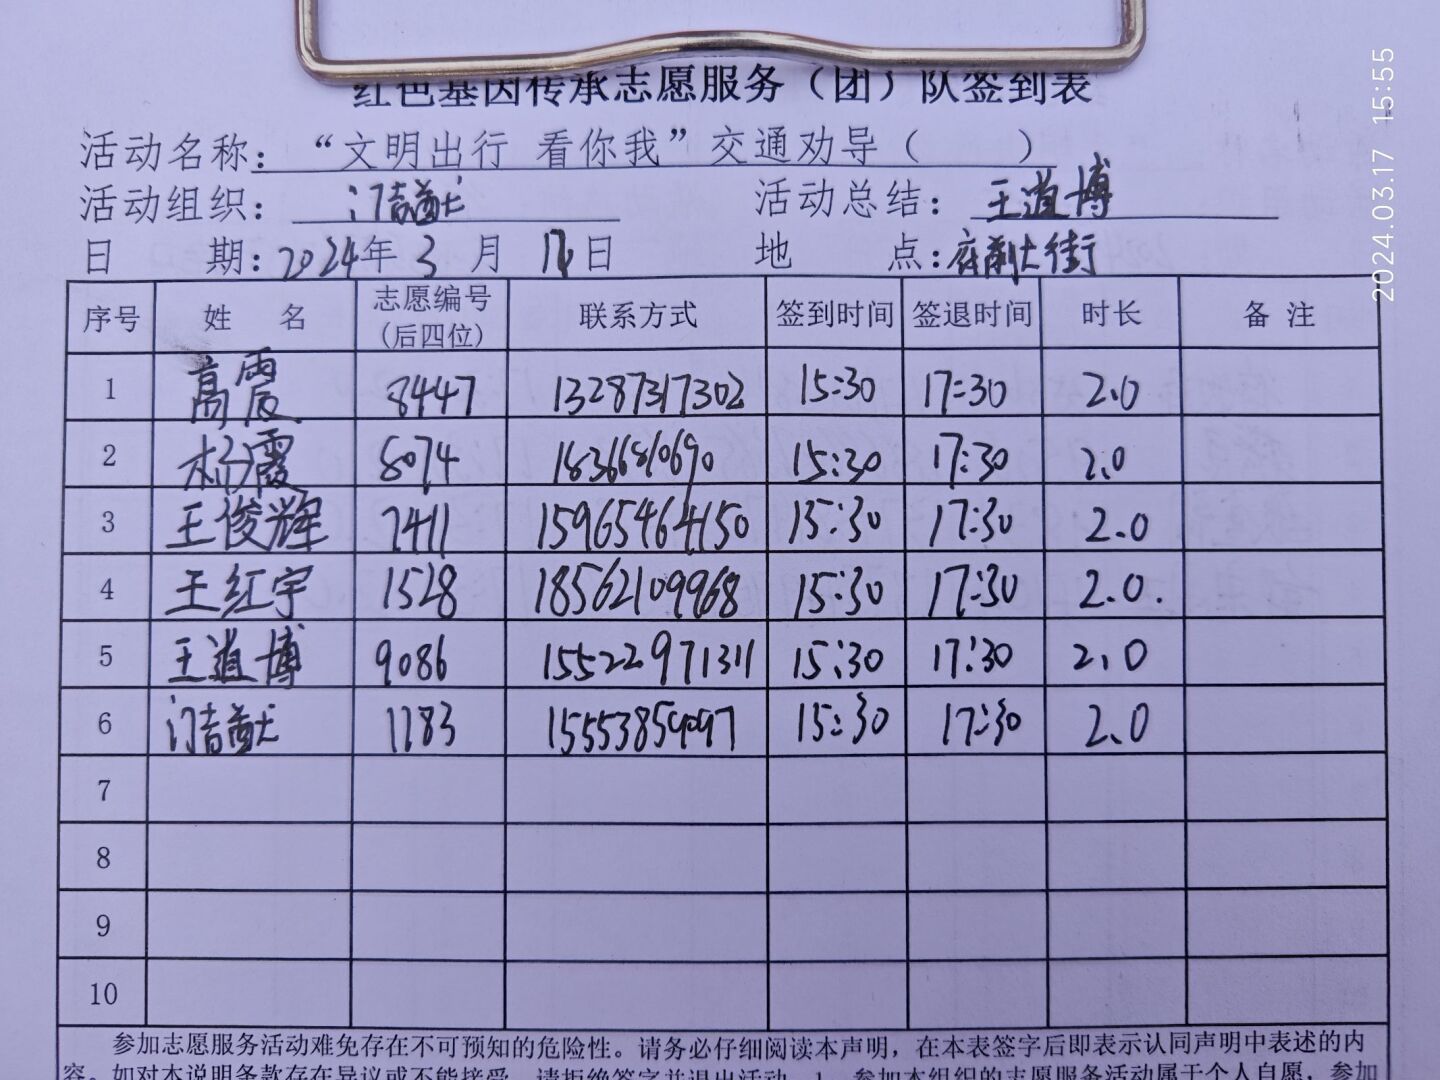 红色基因传承志愿服务（团）队签到表
活动名称：“文明出行 看你我”交通劝导（ ）
活动组织： 活动总结：王道博
日 期：2024年3月 日 地 点：府前大街
序号 姓 名 志愿编号（后四位） 联系方式 签到时间 签退时间 时长 备 注
1 高震 8447 13287317302 15:30 17:30 2.0
2 杨霞 8074 15:30 17:30 2.0
3 王俊辉 7411 15965464150 15:30 17:30 2.0
4 王红宇 1528 18562109968 15:30 17:30 2.0.
5 王道博 9086 15522971311 15:30 17:30 2.0
6 1183 15:30 17:30 2.0
7
8
9
10
参加志愿服务活动难免存在不可预知的危险性。请务必仔细阅读本声明，在本表签字后即表示认同声明中表述的内
容。如对本说明条款存在异议或不能接受，请拒绝签字并退出活动。1、参加本组织的志愿服务活动属于个人自愿，参加
2024.03.17 15:55